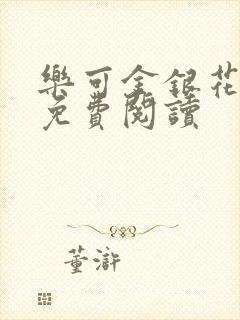 樂可金銀花
免費閱讀
董滸